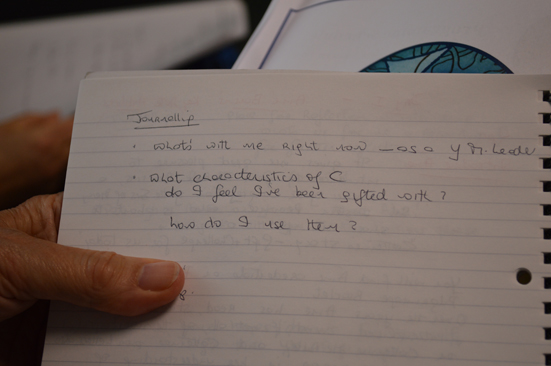 Journalling
• What's with me right now – as a y M. Leader
• What characteristics of C
do I feel I've been gifted with?
how do I use them?